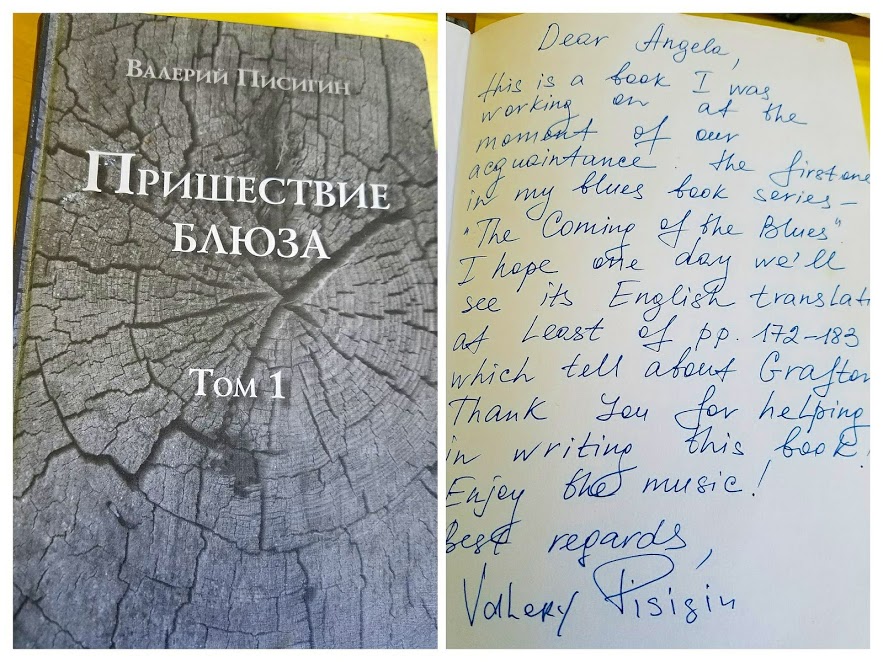 Валерий Писигин
Пришествие
блюза
Том 1
Dear Angela,
this is a book I was
working on at the
moment of our
acquaintance. the first one
in my blues book series –
"The Coming of the Blues"
I hope one day we'll
see its English translati
at Least of pp. 172–183
which tell about Grafton
Thank You for helping
in writing this book!
Enjoy the music!
Best regards,
Valery Pisigin